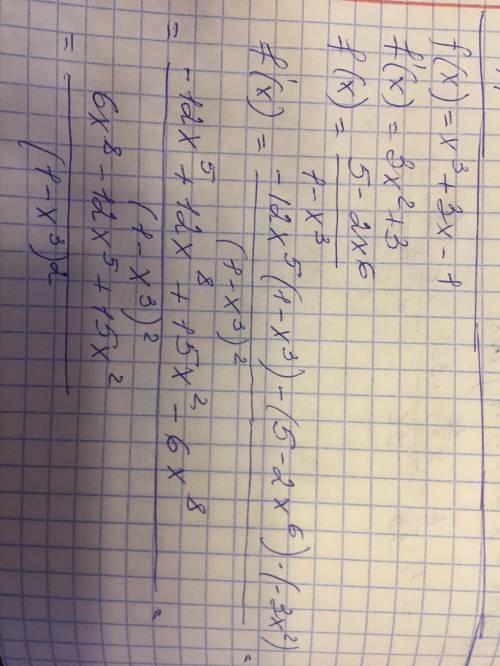 f(x) = x³ + 3x - 1
f'(x) = 3x² + 3
f(x) = (5 - 2x⁶) / (1 - x³)
f'(x) = (-12x⁵(1 - x³) - (5 - 2x⁶)·(-3x²)) / (1 - x³)² =
= (-12x⁵ + 12x⁸ + 15x² - 6x⁸) / (1 - x³)² =
= (6x⁸ - 12x⁵ + 15x²) / (1 - x³)²